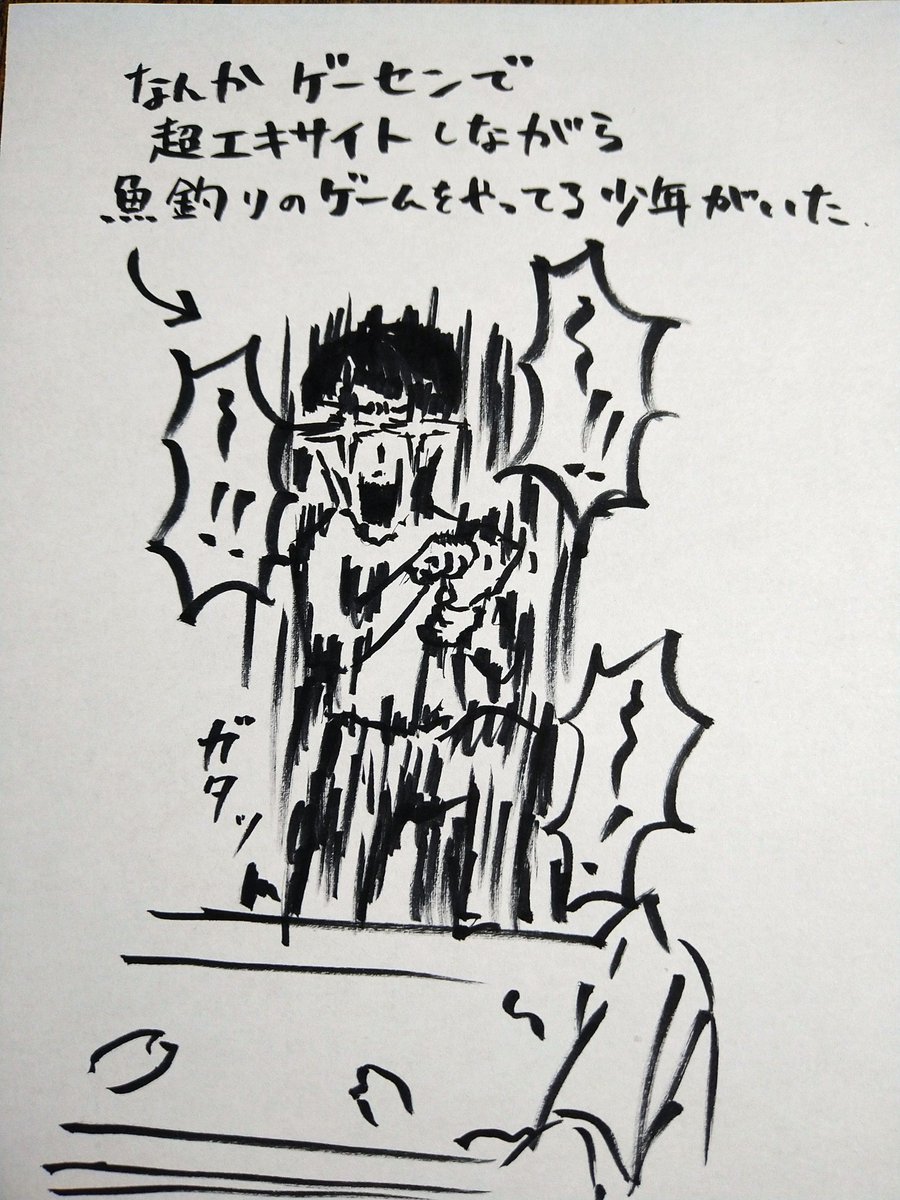 なんか ゲーセンで
超エキサイトしながら
魚釣りのゲームをやってる少年がいた.
ガタッ